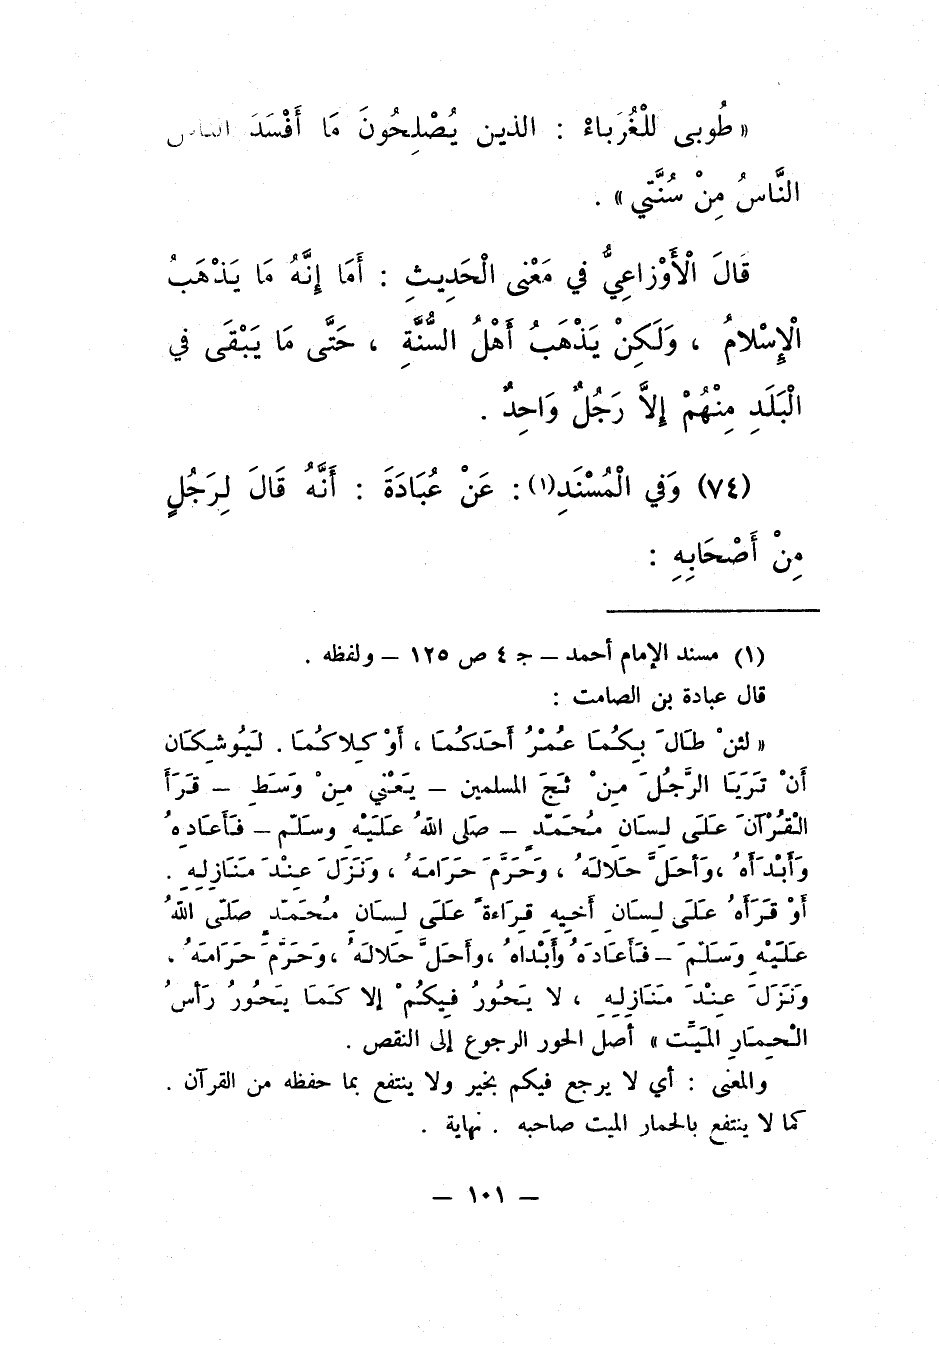 « طُوبى للْغُرَباءْ : الذين يُصْلِحُونَ مَا أَفْسَدَ الناس
النَّاسُ مِنْ سُنَّتي » .
قَالَ الْأَوْزاعِيُّ في مَعْنى الْحَدِيثِ : أَمَا إِنَّهُ مَا يَذْهَبُ
الْإِسْلامُ ، وَلَكِنْ يَذْهَبُ أَهْلُ السُّنَّةِ ، حَتَّى مَا يَبْقَى في
الْبَلَدِ مِنْهُمْ إِلاَّ رَجُلٌ وَاحِدٌ .
(٧٤) وَفي الْمُسْنَدِ(١) : عَنْ عُبَادَةَ : أَنَّهُ قَالَ لِرَجُلٍ
مِنْ أَصْحَابِهِ :
(١) مسند الإمام أحمد – جـ ٤ ص ١٢٥ – ولفظه .
قال عبادة بن الصامت :
« لئنْ طَالَ بِكُمَا عُمْرُ أَحَدكُمَا ، أَوْ كِلاكُمَا . لَيُوشِكَان
أَنْ تَرَيَا الرَّجُلَ مِنْ ثَبَجَ المسلمين – يَعْني مِنْ وَسَطِ – قَرَأَ
الْقُرْآنَ عَلَى لِسَانِ مُحَمّدٍ – صَلى اللهُ عَلَيْهِ وسَلّم – فَأَعَادهُ
وَأَبْدَأهُ ، وَأَحلَّ حَلالَهُ ، وَحَرَّمَ حَرَامَهُ ، وَنَزَلَ عِنْدَ مَنَازِلِهِ .
أَوْ قَرَأهُ عَلَى لِسَانِ أَخيِهِ قِرَاءةً عَلَى لِسَانِ مُحَمّدٍ صَلّى اللهُ
عَلَيْهِ وَسَلّمَ – فَأَعَادَهُ وأَبْداهُ ، وأَحَلَّ حَلالَهُ ، وَحَرَّمَ حَرَامَهُ ،
وَنَزَلَ عِنْدَ مَنَازِلِهِ ، لا يَحُورُ فِيكُمْ إلا كَمَا يَحُورُ رَأسُ
الْحِمَارِ المَيِّت » أصل الحور الرجوع إلى النقص .
والمعنى : أي لا يرجع فيكم بخير ولا ينتفع بما حفظه من القرآن .
كما لا ينتفع بالحمار الميت صاحبه . نهاية .
– ١٠١ –